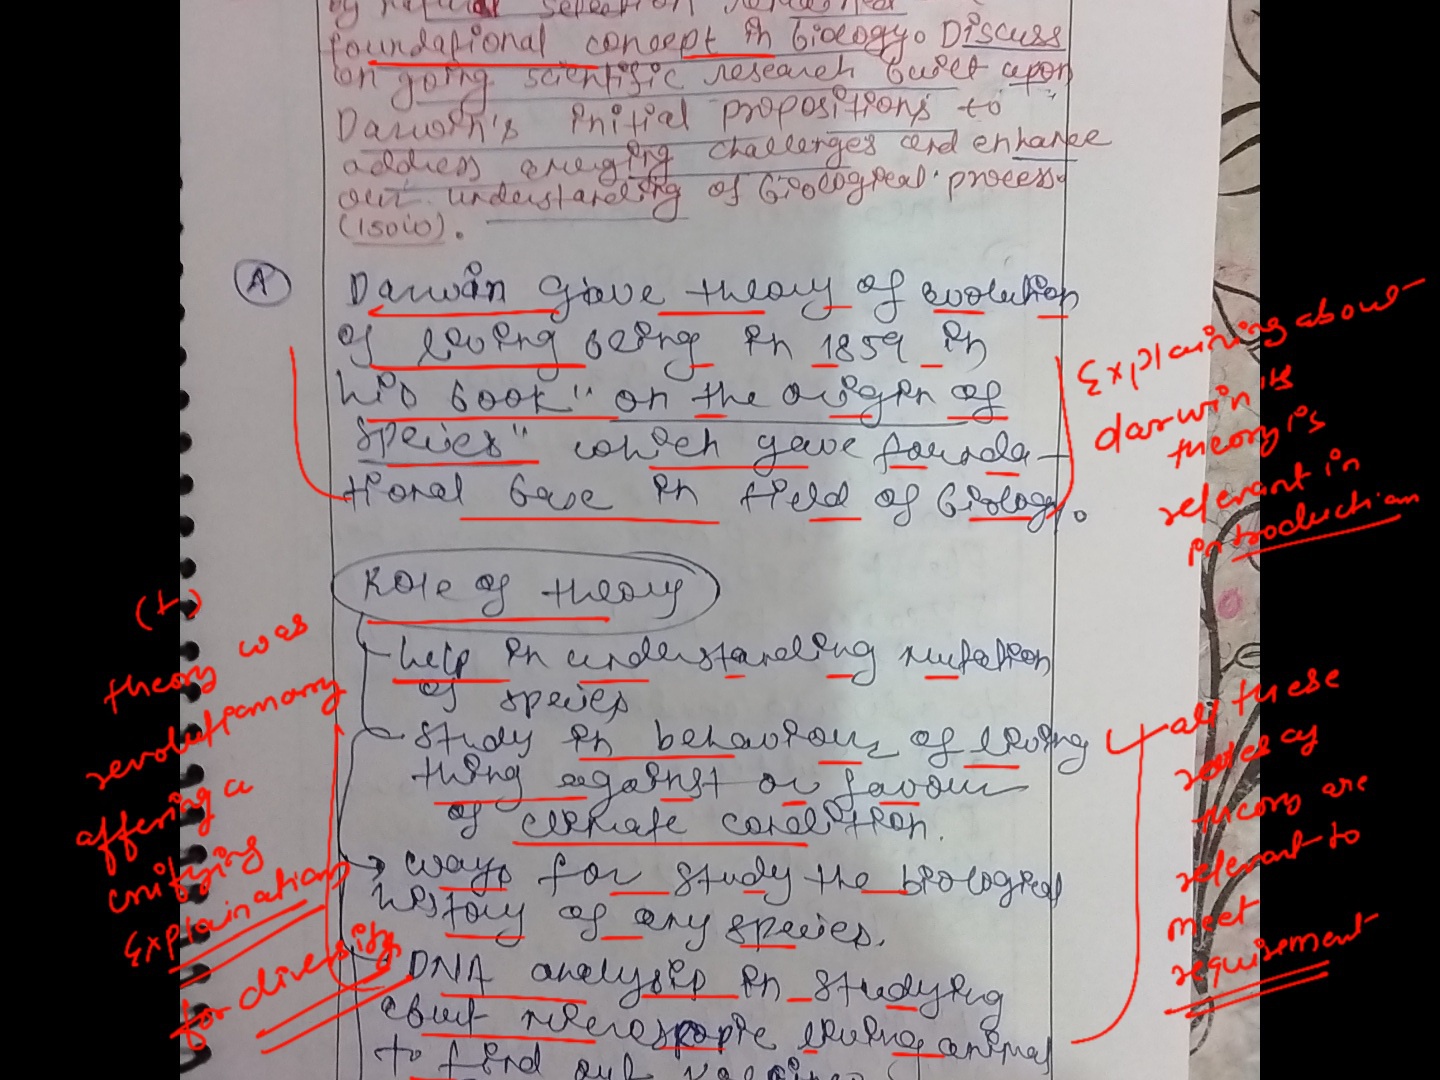 by natural selection remained
foundational concept in biology. Discuss
on going scientific research built upon
Darwin's initial propositions to
address emerging challenges and enhance
our understanding of biological process
(150w).
A
Darwin gave theory of evolution
of living being in 1859 in
his book "on the origin of
species" which gave founda-
tional base in field of biology.
Explaining about
darwin its
theory is
relevant in
introduction
Role of theory
- help in understanding mutation
of species
- study in behaviour of living
thing against or favour
of climate condition.
→ ways for study the biological
history of any species.
- DNA analysis in studying
about microscopic living animal
to find out vaccines
(+)
theory was
revolutionary
offering a
unifying
Explaination
for diversity
all these
roles of
theory are
relevant to
meet
requirement